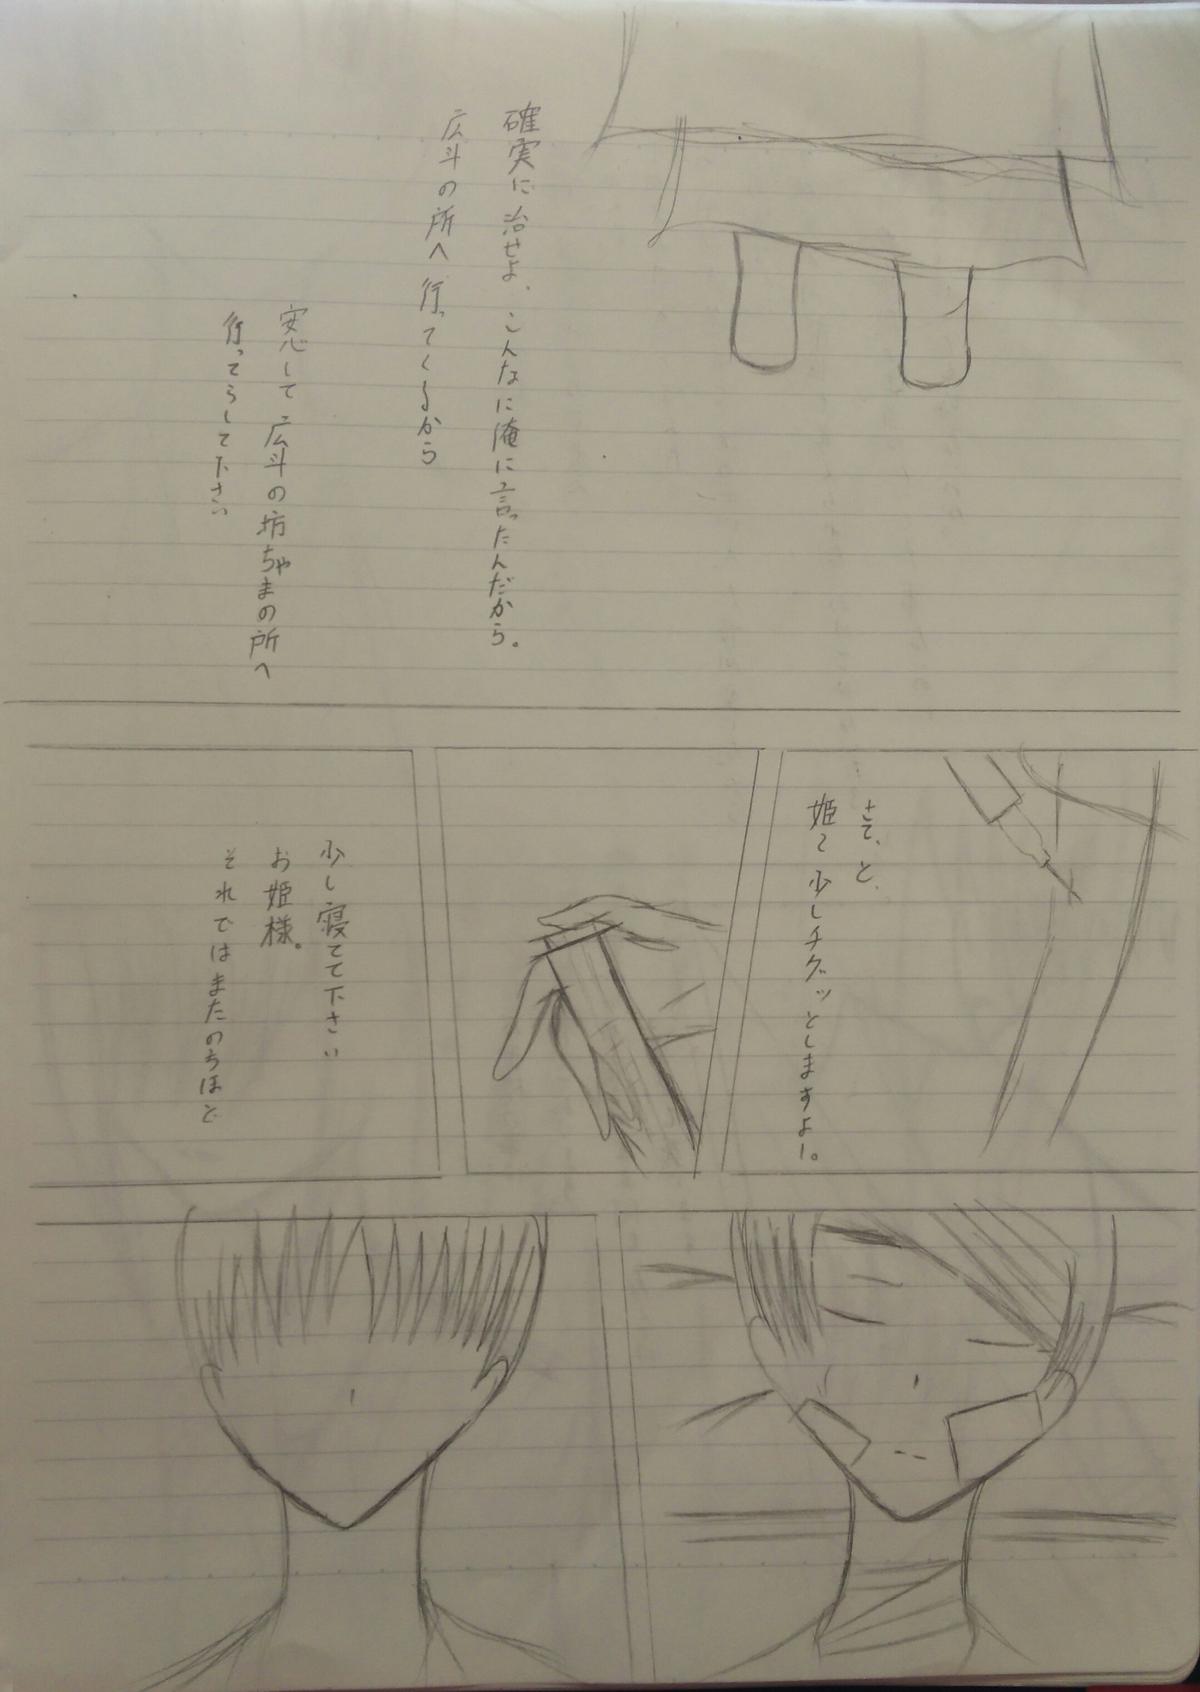 確実に治せよ、こんなに俺に言ったんだから。
広斗の所へ行ってくるから
安心して広斗の坊ちゃまの所へ
行ってらして下さい
さて、と、
姫〜少しチクッとしますよー。
少し寝てて下さい
お姫様。
それではまたのちほど